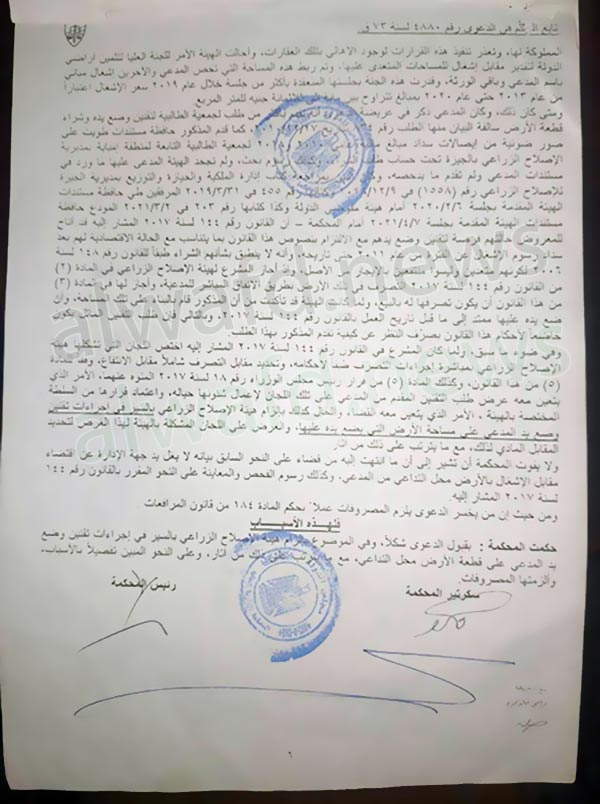 تابع الحكم في الدعوى رقم ٤٨٨٠ لسنة ٧٣ ق.
المملوكة لها، وتعذر تنفيذ هذه القرارات لوجود الاهالي بتلك العقارات، وأحالت الهيئة الأمر للجنة العليا لتثمين أراضي
الدولة لتقدير مقابل إشغال للمساحات المتعدى عليها، وتم ربط هذه المساحة التي تخص المدعي والآخرين إشغال مباني
باسم المدعي وباقي الورثة، وقدرت هذه الجنة بجلستها المنعقدة بأكثر من جلسة خلال عام ٢٠١٩ سعر الإشغال اعتباراً
من عام ٢٠١٣ حتى عام ٢٠٢٠ بمبالغ تتراوح بين جنيه للمتر المربع
ومتى كان ذلك، وكان المدعي ذكر في عريضة من طلب لجمعية الطالبية لتقنين وضع يده وشراء
قطعة الأرض سالفة البيان منها الطلب رقم كما قدم المذكور حافظة مستندات طويت على
صور ضوئية من إيصالات سداد مبالغ لجمعية الطالبية التابعة لمنطقة إمبابة بمديرية
الإصلاح الزراعي بالجيزة تحت حساب بحث، ولم تجحد الهيئة المدعى عليها ما ورد في
مستندات المدعي ولم تقدم ما يدحضه، إدارة الملكية والحيازة والتوزيع بمديرية الجيزة
للإصلاح الزراعي رقم (١٥٥٨) في ٢٠١٩/١٢/٩ رقم ٤٥٥ في ٢٠١٩/٣/٣١ المرفقين طي حافظة مستندات
الهيئة المقدمة بجلسة ٢٠٢٠/٦/٢ أمام هيئة الدولة وكذا كتابها رقم ٢٠٣ في ٢٠٢١/٣/٢ المودع حافظة
مستندات الهيئة المقدمة بجلسة ٢٠٢١/٤/٧ أمام المحكمة – أن القانون رقم ١٤٤ لسنة ٢٠١٧ المشار إليه قد أتاح
للمعروض حالتهم فرصة تقنين وضع يدهم مع الالتزام بنصوص هذا القانون بما يتناسب مع الحالة الاقتصادية لهم بعد
سداد رسوم الإشغال عن الفترة من حتى تاريخه، وأنه لا ينطبق بشأنهم الشراء طبقاً للقانون رقم ١٤٨ لسنة
٢٠٠٦ لكونهم متعدين وليسوا منتفعين بالإيجار من الأصل، وقد أجاز المشرع لهيئة الإصلاح الزراعي في المادة (٢)
من القانون رقم ١٤٤ لسنة ٢٠١٧ التصرف في أملاك الدولة بطريق الاتفاق المباشر للمدعية، وأجاز لها في المادة (٣)
من هذا القانون أن يكون تصرفها له بالبيع، ولما كانت الهيئة قد تأكدت من أن المذكور قام بالبناء على تلك المساحة، وأن
وضع يده عليها ممتد إلى ما قبل تاريخ العمل بالقانون رقم ١٤٤ لسنة ٢٠١٧، وبالتالي فإن طلب تقنين الماثل يكون
خاضعاً لأحكام هذا القانون بصرف النظر عن كيفية تقدم المذكور بهذا الطلب.
وفي ضوء ما سبق، ولما كان المشرع في القانون رقم ١٤٤ لسنة ٢٠١٧ المشار إليه اختص اللجان التي تشكلها هيئة
الإصلاح الزراعي بمباشرة إجراءات التصرف ضمناً لأحكامه، وتحديد مقابل التصرف شاملاً مقابل الانتفاع، وفقاً للمادة
(٥) من هذا القانون، وكذلك المادة (٥) من قرار رئيس مجلس الوزراء رقم ١٨ لسنة ٢٠١٧ المنوه عنهما، الأمر الذي
يتعين معه عرض طلب التقنين المقدم من المدعي على تلك اللجان لإعمال شئونها حياله، واعتماد قرارها من السلطة
المختصة بالهيئة، الأمر الذي يتعين معه القضاء والحال كذلك، بإلزام هيئة الإصلاح الزراعي بالسير في إجراءات تقنين
وضع يد المدعي على مساحة الأرض التي يضع يده عليها، والعرض على اللجان المشكلة بالهيئة لهذا الغرض لتحديد
المقابل المادي لذلك، مع ما يترتب على ذلك من آثار.
ولا يفوت المحكمة أن تشير إلى أن ما انتهت إليه من قضاء على النحو السابق بيانه لا يغل يد جهة الإدارة عن اقتضاء
مقابل الإشغال بالأرض محل التداعي من المدعي، وكذلك رسوم الفحص والمعاينة على النحو المقرر بالقانون رقم ١٤٤
لسنة ٢٠١٧ المشار إليه.
ومن حيث إن من يخسر الدعوى يلزم المصروفات عملاً بحكم المادة ١٨٤ من قانون المرافعات.
فلهذه الأسباب
حكمت المحكمة : بقبول الدعوى شكلاً، وفي الموضوع بإلزام هيئة الإصلاح الزراعي بالسير في إجراءات تقنين وضع
يد المدعي على قطعة الأرض محل التداعي، مع ما يترتب على ذلك من آثار، وعلى النحو المبين تفصيلاً بالأسباب،
وألزمتها المصروفات.
سكرتير المحكمة
رئيس المحكمة
٦
alwafd news
alwafd news